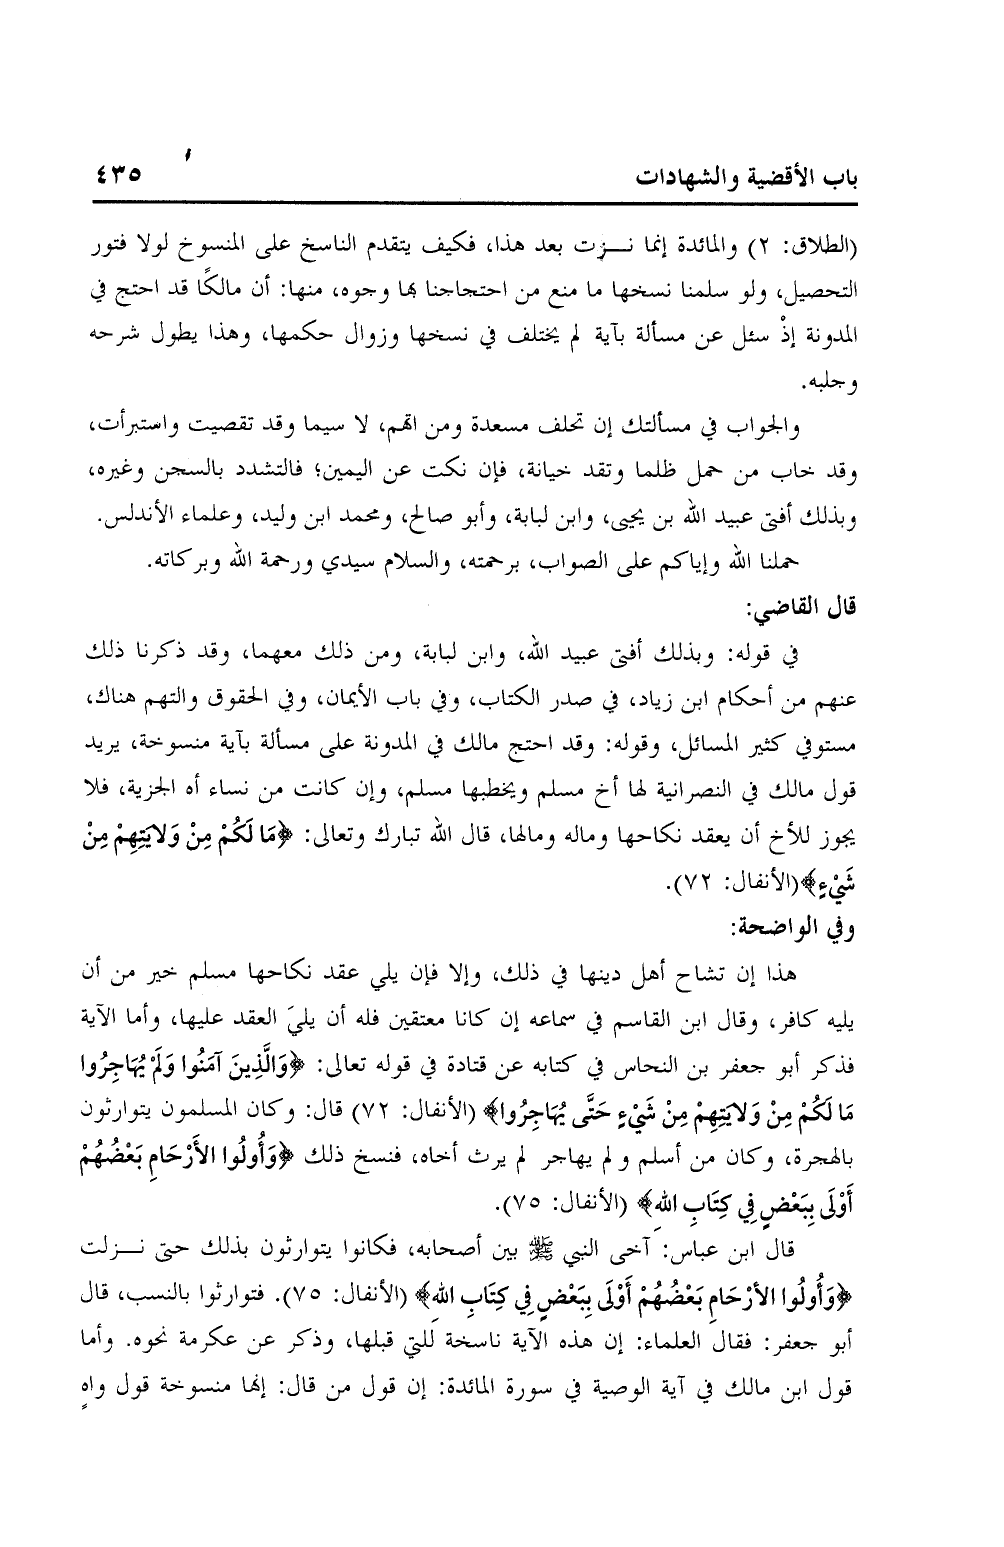 باب الأقضية والشهادات ٤٣٥
(الطلاق: ٢) والمائدة إنما نـــزت بعد هذا، فكيف يتقدم الناسخ على المنسوخ لولا فتور
التحصيل، ولو سلمنا نسخها ما منع من احتجاجنا بها وجوه، منها: أن مالكًا قد احتج في
المدونة إذْ سئل عن مسألة بآية لم يختلف في نسخها وزوال حكمها، وهذا يطول شرحه
وجلبه.
والجواب في مسألتك إن تحلف مسعدة ومن اتهم، لا سيما وقد تقصيت واستبرأت،
وقد خاب من حمل ظلما وتقد خيانة، فإن نكت عن اليمين؛ فالتشدد بالسجن وغيره،
وبذلك أفتى عبيد الله بن يحيى، وابن لبابة، وأبو صالح، ومحمد ابن وليد، وعلماء الأندلس.
حملنا الله وإياكم على الصواب، برحمته، والسلام سيدي ورحمة الله وبركاته.
قال القاضي:
في قوله: وبذلك أفتى عبيد الله، وابن لبابة، ومن ذلك معهما، وقد ذكرنا ذلك
عنهم من أحكام ابن زياد، في صدر الكتاب، وفي باب الأيمان، وفي الحقوق والتهم هناك،
مستوفي كثير المسائل، وقوله: وقد احتج مالك في المدونة على مسألة بآية منسوخة، يريد
قول مالك في النصرانية لها أخ مسلم ويخطبها مسلم، وإن كانت من نساء أه الجزية، فلا
يجوز للأخ أن يعقد نكاحها وماله ومالها، قال الله تبارك وتعالى: ﴿مَا لَكُمْ مِنْ وَلايَتِهِمْ مِنْ
شَيْءٍ﴾(الأنفال: ٧٢).
وفي الواضحة:
هذا إن تشاح أهل دينها في ذلك، وإلا فإن يلي عقد نكاحها مسلم خير من أن
يليه كافر، وقال ابن القاسم في سماعه إن كانا معتقين فله أن يليَ العقد عليها، وأما الآية
فذكر أبو جعفر بن النحاس في كتابه عن قتادة في قوله تعالى: ﴿وَالَّذِينَ آمَنُوا وَلَمْ يُهَاجِرُوا
مَا لَكُمْ مِنْ وَلايَتِهِمْ مِنْ شَيْءٍ حَتَّى يُهَاجِرُوا﴾ (الأنفال: ٧٢) قال: وكان المسلمون يتوارثون
بالهجرة، وكان من أسلم ولم يهاجر لم يرث أخاه، فنسخ ذلك ﴿وَأُولُوا الأَرْحَامِ بَعْضُهُمْ
أَوْلَى بِبَعْضٍ فِي كِتَابِ اللهِ﴾ (الأنفال: ٧٥).
قال ابن عباس: آخى النبي ﷺ بين أصحابه، فكانوا يتوارثون بذلك حتى نـــزلت
﴿وَأُولُوا الأَرْحَامِ بَعْضُهُمْ أَوْلَى بِبَعْضٍ فِي كِتَابِ اللهِ﴾ (الأنفال: ٧٥). فتوارثوا بالنسب، قال
أبو جعفر: فقال العلماء: إن هذه الآية ناسخة للتي قبلها، وذكر عن عكرمة نحوه. وأما
قول ابن مالك في آية الوصية في سورة المائدة: إن قول من قال: إنها منسوخة قول واهٍ